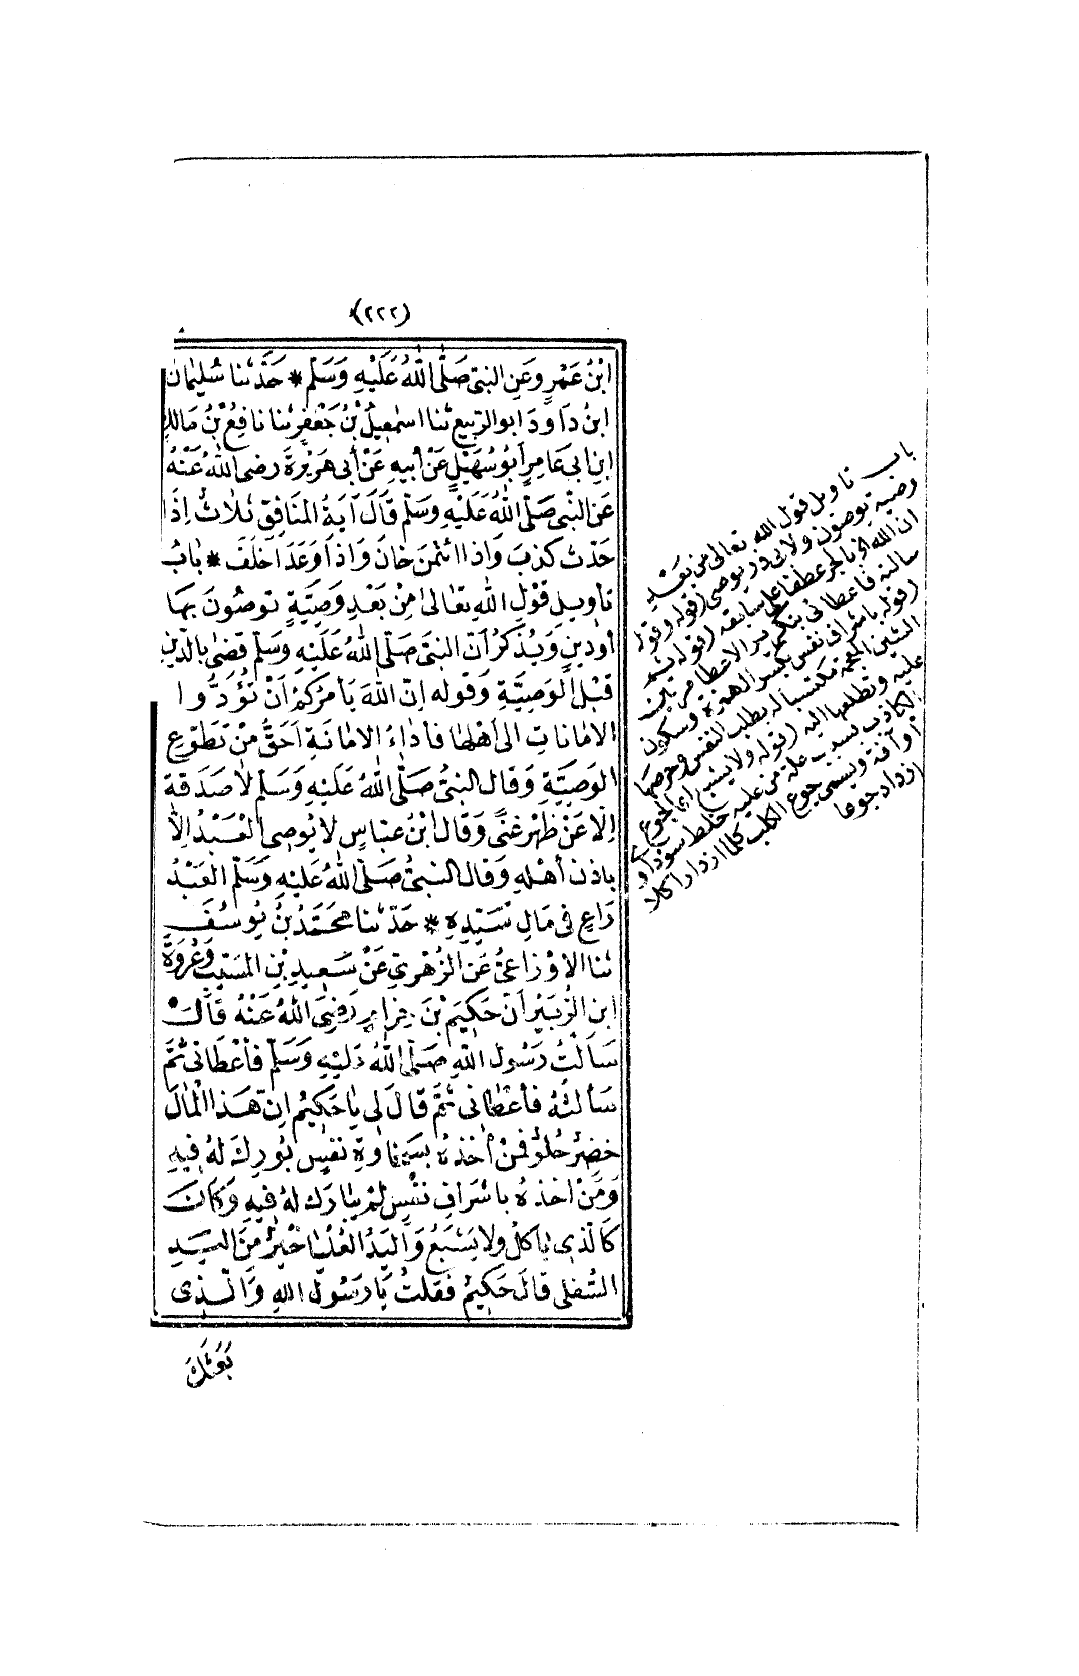 (٢٢٢)
ابْنُ عَمْرٍ وَعَنِ النَّبِيِّ صَلَّى اللهُ عَلَيْهِ وَسَلَّمَ * حَدَّثَنَا سُلَيْمَان
ابنُ دَاودَ ابو الرَّبِيعِ ثنا اسْمعِيلُ بْنُ جَعْفَرٍ ثنا نافِعُ بْنُ مَالك
ابنِ ابِى عَامِرٍ أبُو سُهَيْلٍ عَنْ أبِيهِ عَنْ أبى هُرَيْرَةَ رضى اللهُ عَنْهُ
عَنِ النَّبِى صَلَّى اللهُ عَلَيْهِ وَسَلَّمَ قَالَ آيَةُ المُنَافِقِ ثَلاثٌ إذَا
حَدَّثَ كَذَبَ وَاذا ائْتُمِنَ خانَ وَاذَا وَعَدَ اَخْلَفَ * بابُ
تاوِيلِ قَوْلِ اللهِ تعَالىٰ مِنْ بَعْدِ وَصِيَّةٍ تُوصُونَ بِهَا
أودينٍ وَيُذْكَرُ أنَّ النبىَّ صَلَّى اللهُ عَلَيْهِ وَسَلَّمَ قَضٰى بالدَّيْنِ
قَبْلَ الوَصِيَّةِ وَقوْلِه إنَّ اللهَ يَأمُرُكمْ أنْ تُؤَدُّوا
الامَانَاتِ الى أهْلِهَا فأدَاءُ الامَانَةِ أحَقُّ مِنْ تَطَوُّعِ
الوَصِيَّةِ وَقَالَ النبىُّ صَلَّى اللهُ عَلَيْهِ وَسَلَّمَ لاصَدَقَةَ
إلاعَنْ ظَهْرِ غِنًى وَقَالَ ابْنُ عبَّاسٍ لا يُوصِى العَبْدُ إلَّا
باذنِ أهْلِهِ وَقَالَ النبىُّ صَلَّى اللهُ عَلَيْهِ وَسَلَّمَ العَبْدُ
رَاعٍ فى مَالِ سَيِّدِهِ * حَدَّثنَا مُحَمَّدُ بنُ يُوسُفَ
ثنا الاوْزَاعِىُّ عَنِ الزُّهْرِىِّ عَنْ سَعِيدِ بْنِ المُسَيِّبِ وَعُرْوَةَ
ابنِ الزُّبَيْرِ أنَّ حَكِيمَ بْنَ حِزَامٍ رَضِىَ اللهُ عَنْهُ قَالَ
سَألْتُ رَسُولَ اللهِ صَلَّى اللهُ عَلَيْهِ وَسَلَّمَ فأعْطَانِى ثُمَّ
سَألتُهُ فأعْطَانِى ثُمَّ قَالَ لِى يَا حَكِيمُ إنَّ هَذَا المَالَ
خَضِرٌ حُلْوٌ فَمَنْ أخَذَهُ بِسَخَاوَةِ نَفْسٍ بُورِكَ لهُ فِيهِ
وَمَنْ اَخَذَهُ بِاشْرَافِ نَفْسٍ لَمْ يُبَارَكْ لهُ فِيهِ وَكَانَ
كَالَّذِى يَاكُلُ وَلا يَشْبَعُ وَاليَدُ العُلْيَا خَيْرٌ مِنَ اليَدِ
السُّفْلى قَالَ حَكِيمٌ فَقلتُ يَا رَسُولَ اللهِ وَالَّذِى
بَعَثَكَ
باب تاويل قول الله تعالى من بعد
وصية توصون ولابى ذر يوصى (قوله وقوله
ان الله الخ) بالجر عطفا على سابقه (قوله ثم
سالته فاعطانى) بتكرير الاعطاء مرتين
(قوله باشراف نفس) بكسر الهمزة وسكون
الشين المعجمة مكتسبا له بطلب النفس وحرصها
عليه وتطلعها اليه (قوله ولا يشبع) اى الجوع
الكاذب بسبب علة من غلبة خلط سوداوى
او آفة ويسمى جوع الكلب كلما ازداد اكلا
ازداد جوعا